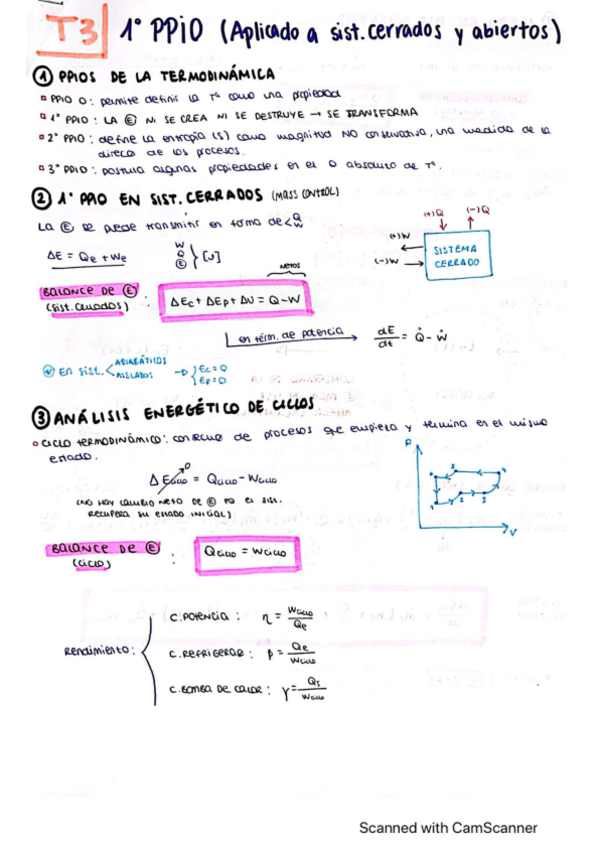 T3 1° PPiO (Aplicado a sist. cerrados y abiertos)
① PPIOS DE LA TERMODINÁMICA
▫ PPIO 0: permite definir la Tª como una propiedad
▫ 1° PPIO: LA Ⓔ NI SE CREA NI SE DESTRUYE → SE TRANSFORMA
▫ 2° PPIO: define la entropía (s) como magnitud NO conservativa, una medida de la
direcc de los procesos.
▫ 3° PPIO: postula algunas propiedades en el 0 absoluto de Tª.
② 1° PPIO EN SIST. CERRADOS (MASS CONTROL)
La Ⓔ se puede transmitir en forma de < Q W
(+)Q (-)Q
(+)W
(-)W
SISTEMA
CERRADO
ΔE = Qe + We
W Q Ⓔ } [J]
NETOS
BALANCE DE Ⓔ
(sist. cerrados) :
ΔEc + ΔEp + ΔU = Q - W
en térm. de potencia → dE/dt = Q̇ - Ẇ
En sist. < ADIABÁTICOS AISLADOS → { Ec=0 Ep=0
③ ANÁLISIS ENERGÉTICO DE CICLOS
▫ CICLO TERMODINÁMICO: consecuc de procesos que empieza y termina en el mismo
estado.
ΔEciclo = Qciclo - Wciclo
0
(NO HAY CAMBIO NETO DE Ⓔ PQ EL SIST.
RECUPERA SU ESTADO INICIAL)
P
V
BALANCE DE Ⓔ
(ciclo) :
Qciclo = Wciclo
Rendimiento:
C. POTENCIA: η = Wciclo/Qe
C. REFRIGERAC: β = Qe/Wciclo
C. BOMBA DE CALOR: γ = Qs/Wciclo
Scanned with CamScanner